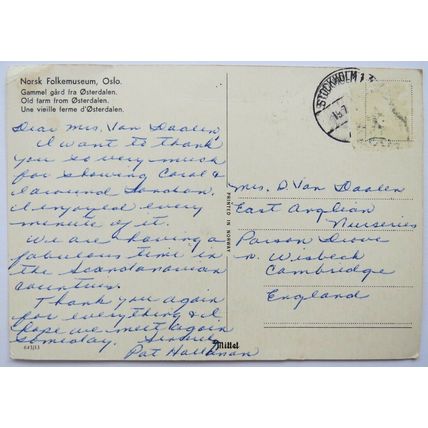 Norsk Folkemuseum, Oslo.
Gammel gård fra Østerdalen.
Old farm from Østerdalen.
Une vieille ferme d'Østerdalen.
Dear Mrs. Van Daalen,
I want to thank
you so very much
for showing Carol &
I around London.
I enjoyed every
minute of it.
We are having a
fabulous time in
the Scandanavian
countries.
Thank you again
for everything & I
hope we meet again
someday. Sincerely
Pat
643/13
Mittet
PRINTED IN NORWAY
STOCKHOLM 1
Mrs. D. Van Daalen
East Anglian
Nurseries
Parson Drove
n. Wisbech
Cambridge
England